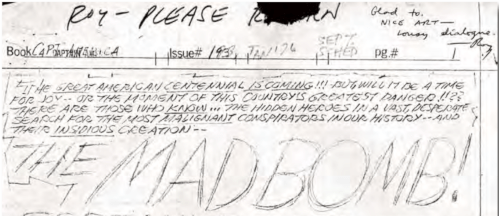 ROY - PLEASE RETURN
Glad to.
NICE ART -
Lousy dialogue.
- Roy
Book Issue# 193 JAN '76 SEPT pg.# 1
THE GREAT AMERICAN CENTENNIAL IS COMING!!! - BUT WILL IT BE A TIME
FOR JOY -- OR THE MOMENT OF THIS COUNTRY'S GREATEST DANGER!!??
THERE ARE THOSE WHO KNOW -- THE HIDDEN HEROES IN A LAST DESPERATE
SEARCH FOR THE MOST MALIGNANT CONSPIRATORS IN OUR HISTORY -- AND
THEIR INSIDIOUS CREATION --
THE MADBOMB!